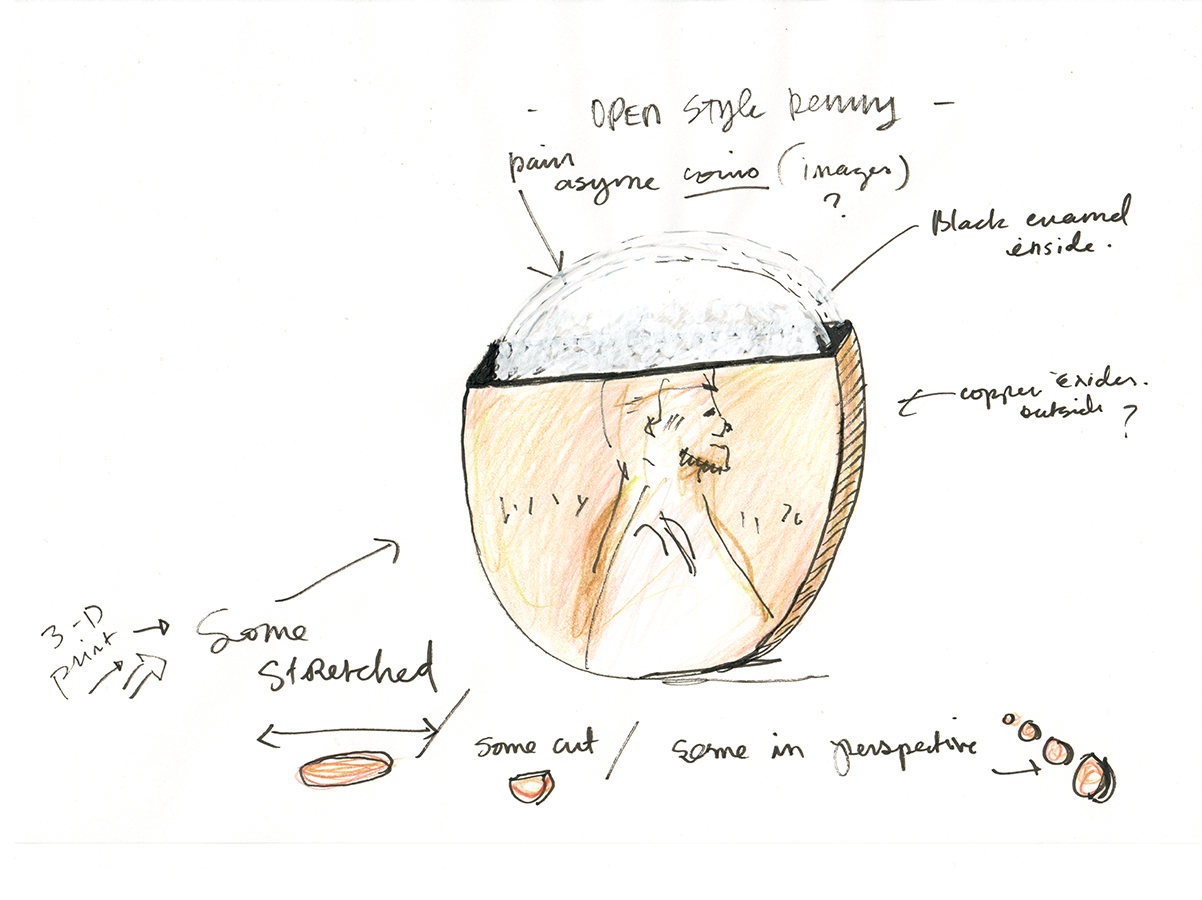 - OPEN Style Penny -
asyme coins (images)
?
Black enamel
inside.
copper
outside
?
3-D
print
Some
Stretched
some cut / some in perspective